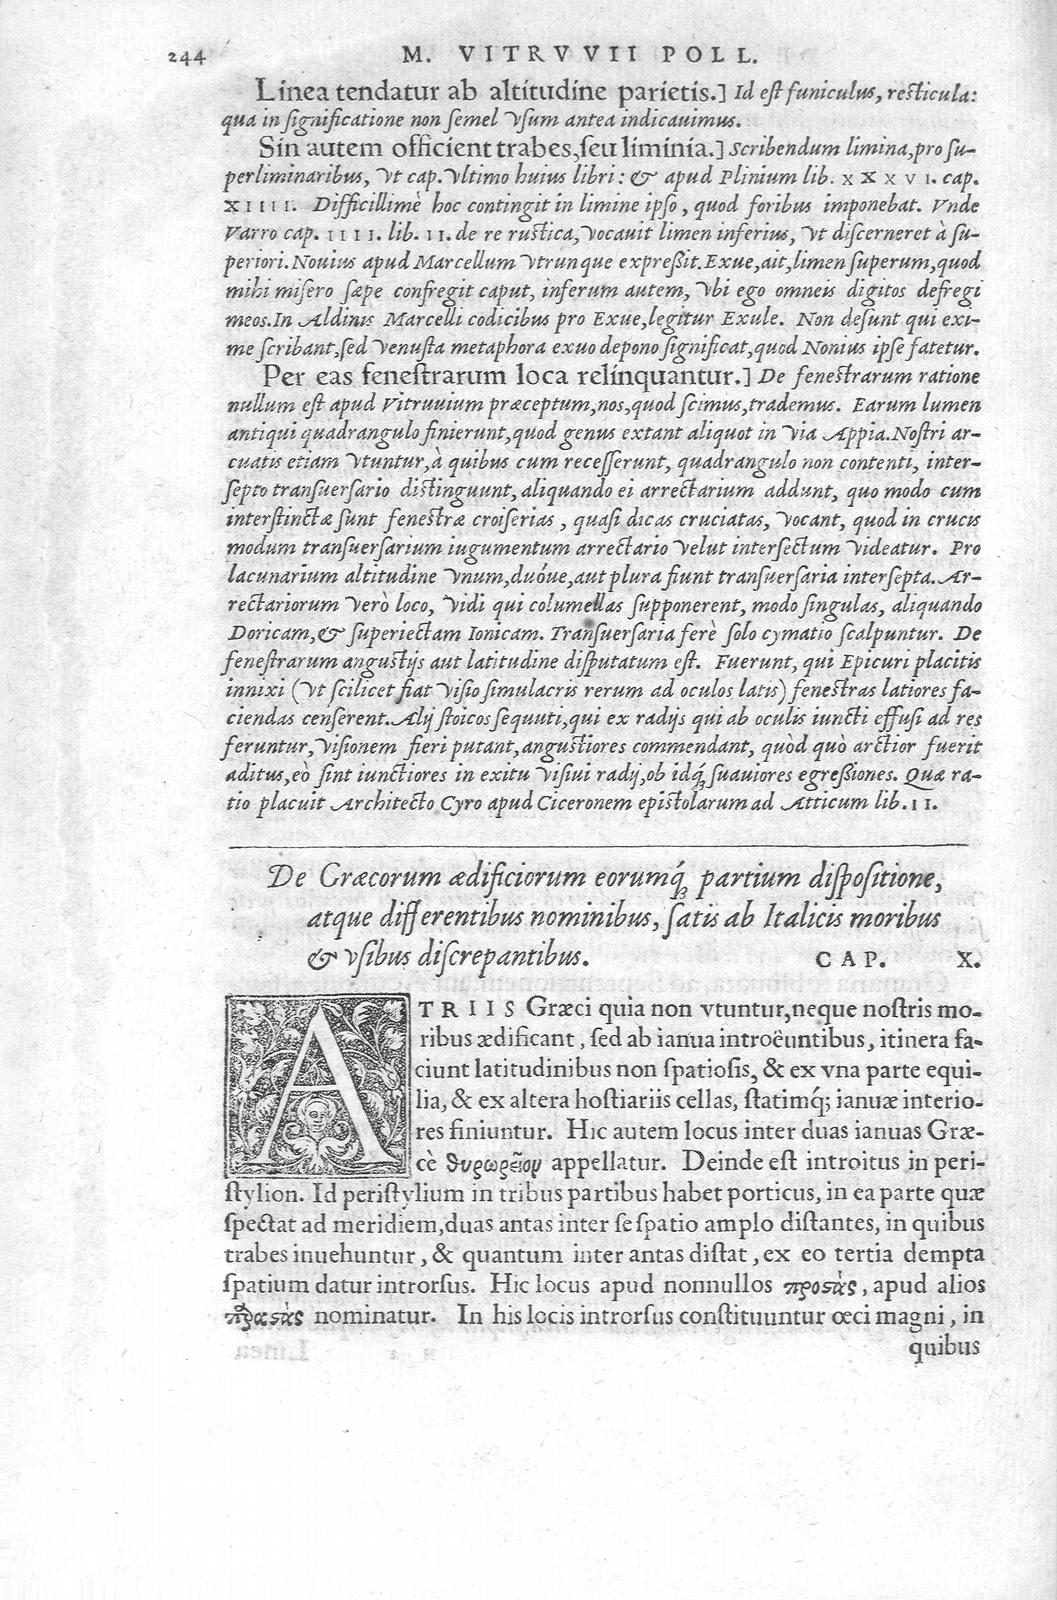 244 M. VITRVVII POLL.
Linea tendatur ab altitudine parietis.] Id est funiculus, resticula:
qua in significatione non semel vsum antea indicauimus.
Sin autem officient trabes, seu liminia.] Scribendum limina, pro su-
perliminaribus, vt cap. vltimo huius libri: & apud Plinium lib. XXXVI. cap.
XIIII. Difficillimè hoc contingit in limine ipso, quod foribus imponebat. Vnde
Varro cap. IIII. lib. II. de re rustica, vocauit limen inferius, vt discerneret à su-
periori. Nouius apud Marcellum vtrunque expreßit. Exue, ait, limen superum, quod
mihi misero sæpe confregit caput, inferum autem, vbi ego omneis digitos defregi
meos. In Aldinis Marcelli codicibus pro Exue, legitur Exule. Non desunt qui exi-
me scribant, sed venusta metaphora exuo depono significat, quod Nonius ipse fatetur.
Per eas fenestrarum loca relinquantur.] De fenestrarum ratione
nullum est apud Vitruuium præceptum, nos, quod scimus, trademus. Earum lumen
antiqui quadrangulo finierunt, quod genus extant aliquot in via Appia. Nostri ar-
cuatis etiam vtuntur, à quibus cum recesserunt, quadrangulo non contenti, inter-
septo transuersario distinguunt, aliquando ei arrectarium addunt, quo modo cum
interstinctæ sunt fenestræ croiserias, quasi dicas cruciatas, vocant, quod in crucis
modum transuersarium iugumentum arrectario velut intersectum videatur. Pro
lacunarium altitudine vnum, duóue, aut plura fiunt transuersaria intersepta. Ar-
rectariorum verò loco, vidi qui columellas supponerent, modo singulas, aliquando
Doricam, & superiectam Ionicam. Transuersaria ferè solo cymatio scalpuntur. De
fenestrarum angustijs aut latitudine disputatum est. Fuerunt, qui Epicuri placitis
innixi (vt scilicet fiat visio simulacris rerum ad oculos latis) fenestras latiores fa-
ciendas censerent. Alij stoicos sequuti, qui ex radijs qui ab oculis iuncti effusi ad res
feruntur, visionem fieri putant, angustiores commendant, quòd quò arctior fuerit
aditus, eò sint iunctiores in exitu visiui radij, ob idq́; suauiores egreßiones. Quæ ra-
tio placuit Architecto Cyro apud Ciceronem epistolarum ad Atticum lib. II.
De Græcorum ædificiorum eorumq́; partium dispositione,
atque differentibus nominibus, satis ab Italicis moribus
& vsibus discrepantibus. CAP. X.
ATRIIS Græci quia non vtuntur, neque nostris mo-
ribus ædificant, sed ab ianua introëuntibus, itinera fa-
ciunt latitudinibus non spatiosis, & ex vna parte equi-
lia, & ex altera hostiariis cellas, statimq́; ianuæ interio-
res finiuntur. Hic autem locus inter duas ianuas Græ-
cè θυρωρεῖον appellatur. Deinde est introitus in peri-
stylion. Id peristylium in tribus partibus habet porticus, in ea parte quæ
spectat ad meridiem, duas antas inter se spatio amplo distantes, in quibus
trabes inuehuntur, & quantum inter antas distat, ex eo tertia dempta
spatium datur introrsus. Hic locus apud nonnullos προστὰς, apud alios
παραστὰς nominatur. In his locis introrsus constituuntur œci magni, in
quibus